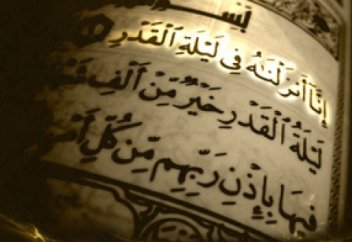 بِسْمِ
إِنَّا أَنزَلْنَٰهُ فِى لَيْلَةِ ٱلْقَدْرِ
لَيْلَةُ ٱلْقَدْرِ خَيْرٌ مِّنْ أَلْفِ
فِيهَا بِإِذْنِ رَبِّهِم مِّن كُلِّ